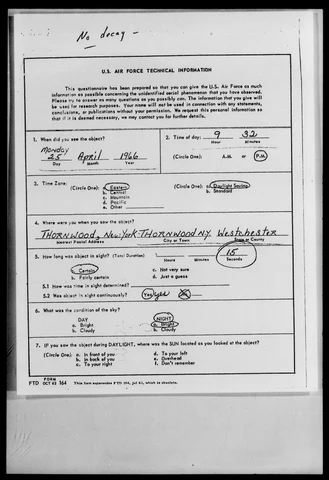 No decay -
U.S. AIR FORCE TECHNICAL INFORMATION
This questionnaire has been prepared so that you can give the U.S. Air Force as much
information as possible concerning the unidentified aerial phenomenon that you have observed.
Please try to answer as many questions as you possibly can. The information that you give will
be used for research purposes. Your name will not be used in connection with any statements,
conclusions, or publications without your permission. We request this personal information so
that if it is deemed necessary, we may contact you for further details.
1. When did you see the object?
Monday
25 April 1966
Day Month Year
2. Time of day: 9 32
Hour Minutes
(Circle One): A.M. or P.M.
3. Time Zone:
(Circle One): a. Eastern
b. Central
c. Mountain
d. Pacific
e. Other
(Circle One): a. Daylight Saving
b. Standard
4. Where were you when you saw the object?
THORNWOOD, New York THORNWOOD N.Y. Westchester
Nearest Postal Address City or Town State or County
5. How long was object in sight? (Total Duration) 15
Hours Minutes Seconds
a. Certain c. Not very sure
b. Fairly certain d. Just a guess
5.1 How was time in sight determined?
5.2 Was object in sight continuously? Yes Yes No
6. What was the condition of the sky?
DAY NIGHT
a. Bright a. Bright
b. Cloudy b. Cloudy
7. IF you saw the object during DAYLIGHT, where was the SUN located as you looked at the object?
(Circle One): a. In front of you d. To your left
b. In back of you e. Overhead
c. To your right f. Don't remember
FORM
FTD OCT 62 164 This form supersedes FTD 164, Jul 61, which is obsolete.